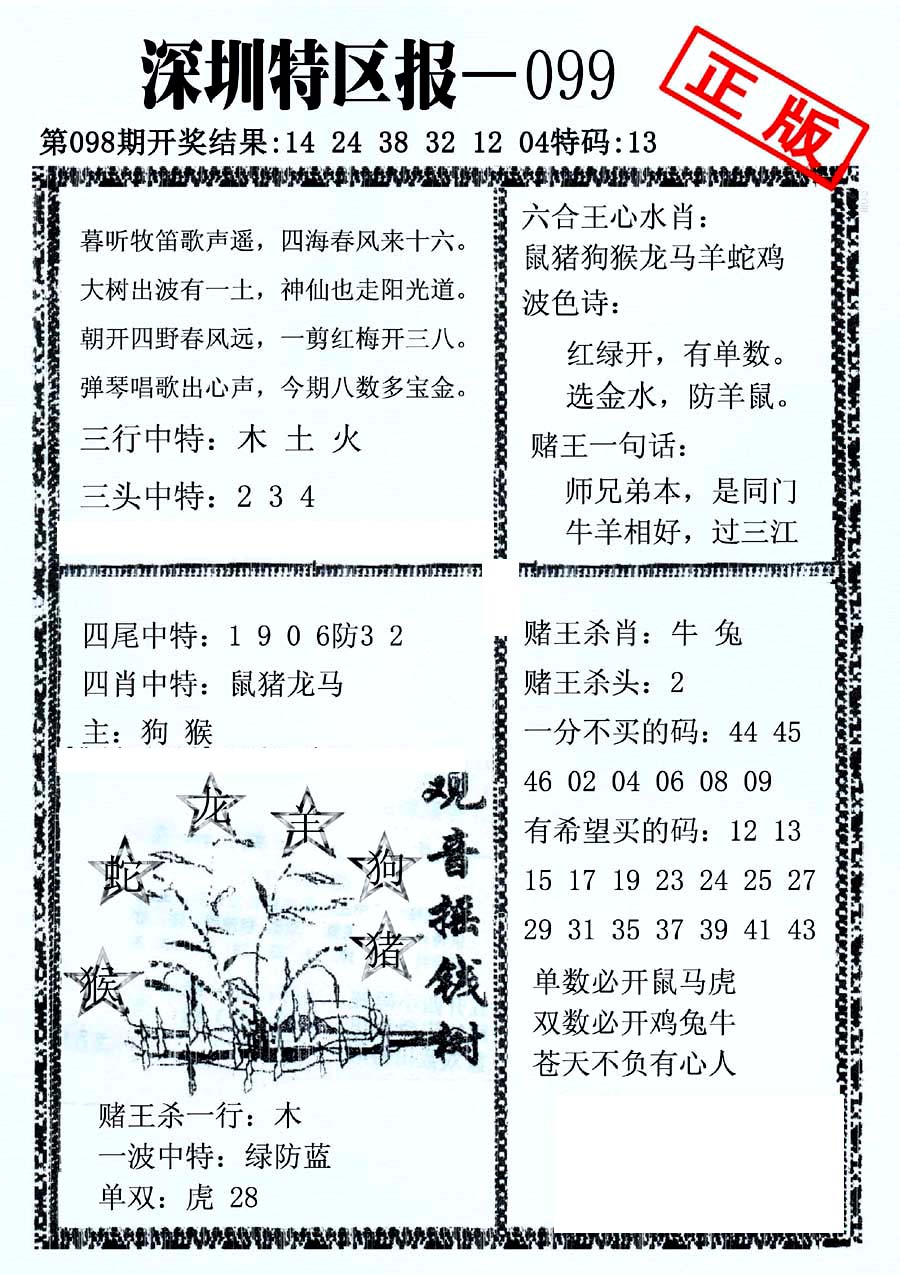 深圳特区报—099
正版
第098期开奖结果:14 24 38 32 12 04特码:13
暮听牧笛歌声遥，四海春风来十六。
大树出波有一土，神仙也走阳光道。
朝开四野春风远，一剪红梅开三八。
弹琴唱歌出心声，今期八数多宝金。
三行中特：木 土 火
三头中特：2 3 4
六合王心水肖：
鼠猪狗猴龙马羊蛇鸡
波色诗：
红绿开，有单数。
选金水，防羊鼠。
赌王一句话：
师兄弟本，是同门
牛羊相好，过三江
四尾中特：1 9 0 6防3 2
四肖中特：鼠猪龙马
主：狗 猴
龙
羊
蛇
狗
猪
猴
观音摇钱树
赌王杀一行：木
一波中特：绿防蓝
单双：虎 28
赌王杀肖：牛 兔
赌王杀头：2
一分不买的码：44 45
46 02 04 06 08 09
有希望买的码：12 13
15 17 19 23 24 25 27
29 31 35 37 39 41 43
单数必开鼠马虎
双数必开鸡兔牛
苍天不负有心人